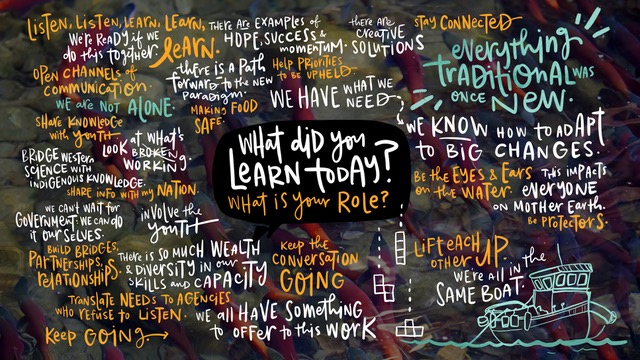 Listen, Listen, Learn, Learn, Learn.
We're Ready if we
do this together.
Open Channels of
communication.
We are not alone.
Share Knowledge
with youth
Look at what's
broken
working.
Bridge Western
Science with
Indigenous Knowledge.
Share info with my Nation.
We can't wait for
Government we can do
it ourselves.
Involve the
youth
Build Bridges,
Partnerships, &
Relationships.
There is so much wealth
& Diversity in our
skills and capacity
Translate needs to agencies
who refuse to listen.
Keep Going →
There are examples of
Hope, Success &
momentum.
There are
creative
solutions
There is a path
forward to the new
paradigm.
Help Priorities
to be upheld.
Making food
safe.
We have what we
need
What did you
learn today?
What is your Role?
Keep the
conversation
going
We all have something
to offer to this work
Stay Connected
Everything
traditional was
once new.
We know how to adapt
to big changes.
Be the eyes & ears
on the water.
This impacts
everyone
on Mother Earth.
Be Protectors.
Lift each
other up.
We're all in the
same boat.